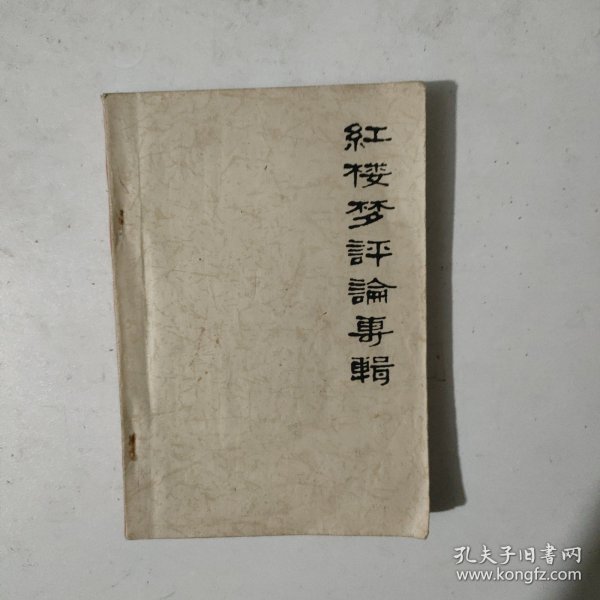 紅楼梦評論專輯
孔夫子旧書网
www.kongfz.com